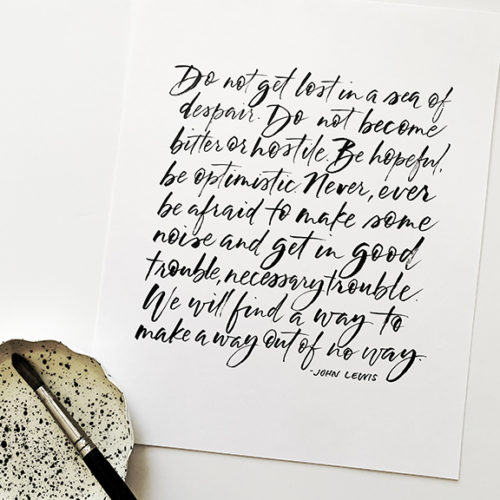 Do not get lost in a sea of
despair. Do not become
bitter or hostile. Be hopeful,
be optimistic. Never, ever
be afraid to make some
noise and get in good
trouble, necessary trouble.
We will find a way to
make a way out of no way.
-JOHN LEWIS